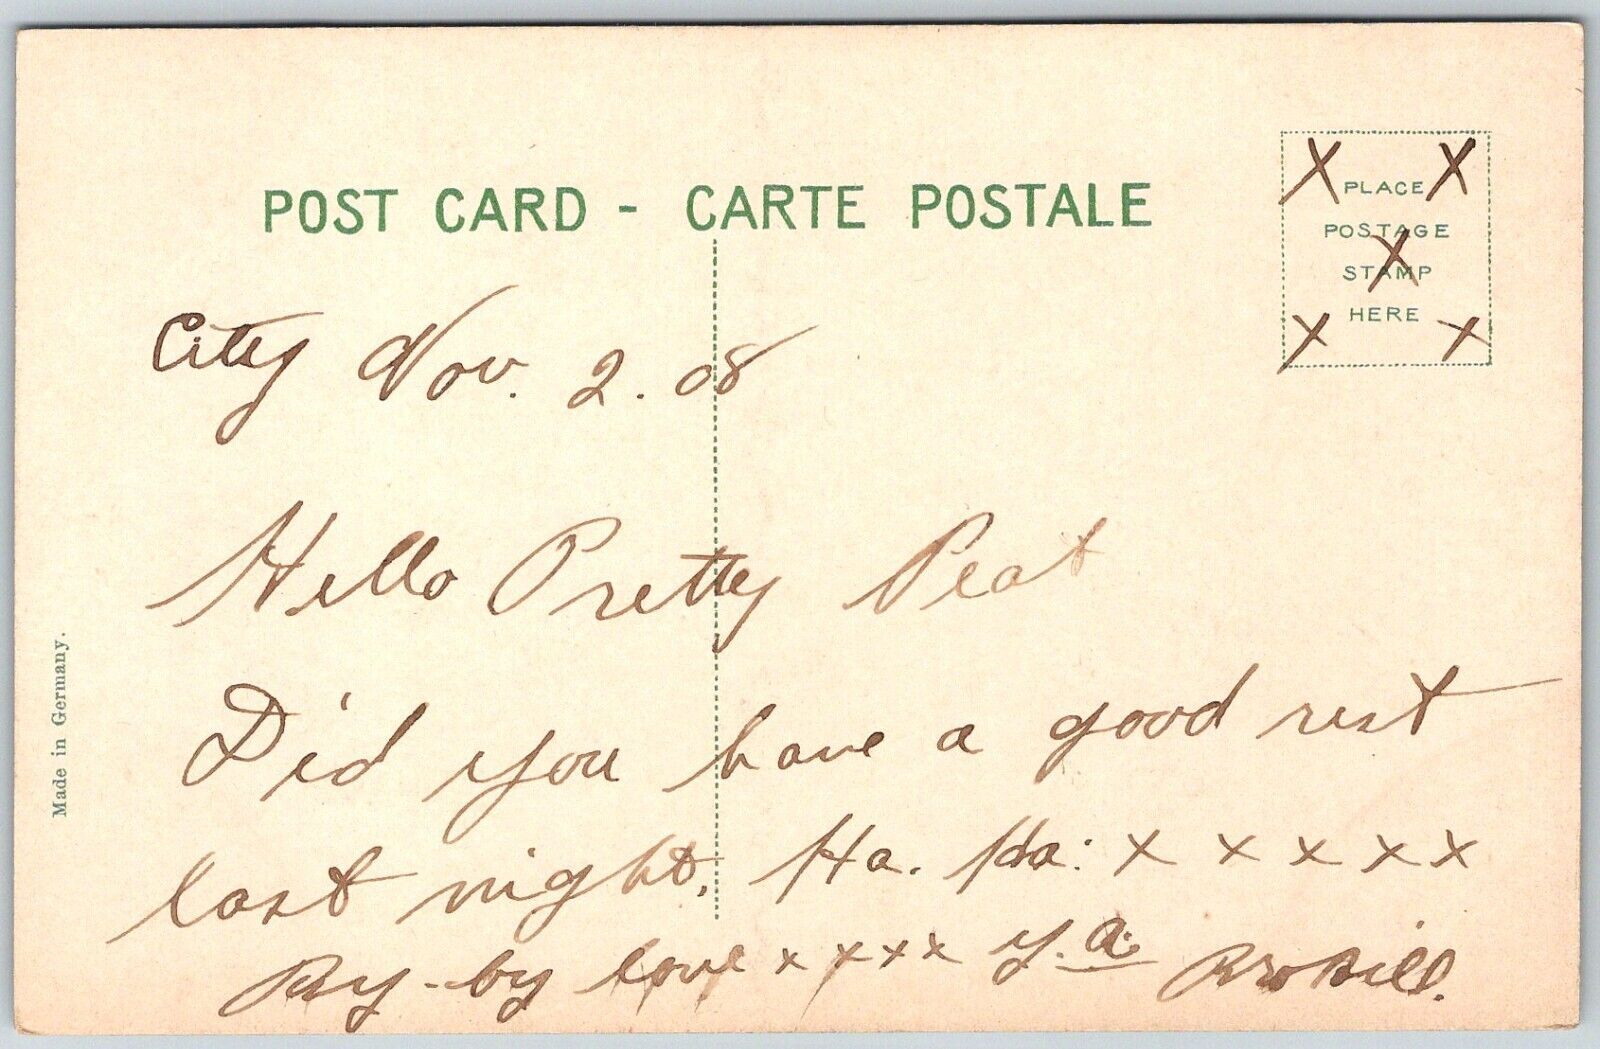 POST CARD - CARTE POSTALE
X PLACE X
POSTAGE
X
STAMP
HERE
X X
City Nov. 2. 08
Hello Pretty Peat
Did you have a good rest
last night. Ha. Ha: x x x x x
By-by love x x x x Y. a. Bro Bill.
Made in Germany.